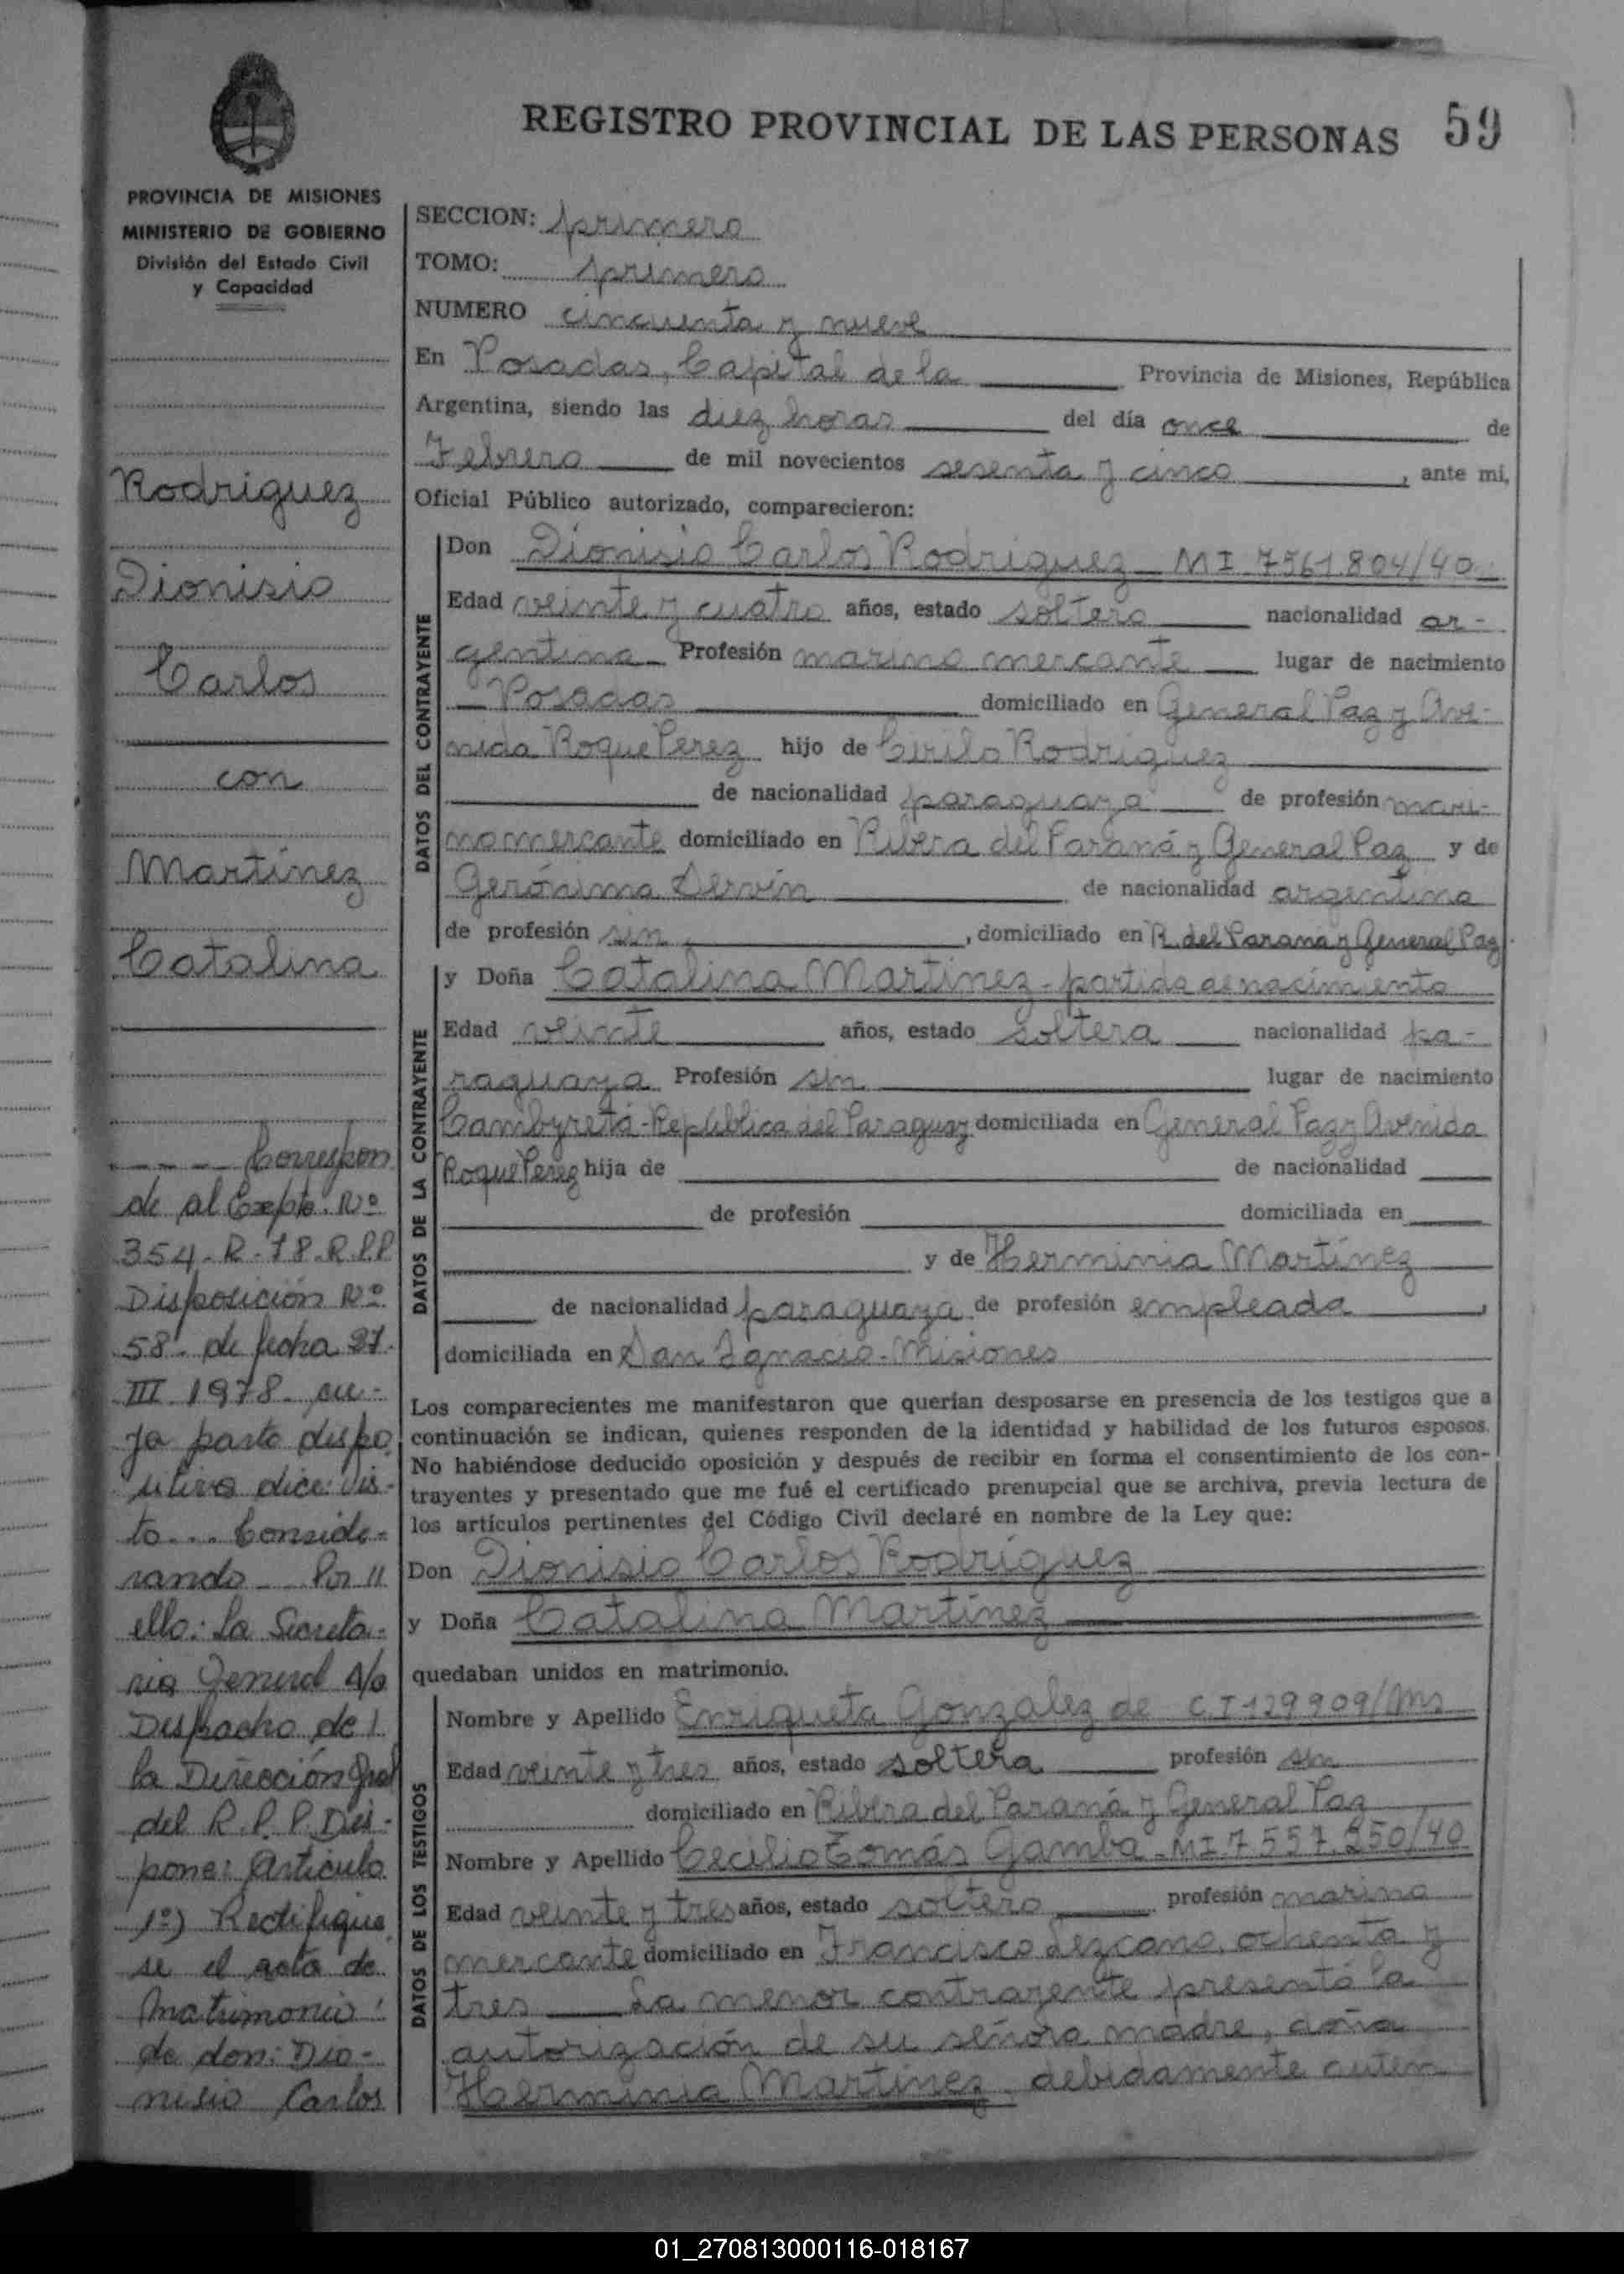 REGISTRO PROVINCIAL DE LAS PERSONAS 59
PROVINCIA DE MISIONES
MINISTERIO DE GOBIERNO
División del Estado Civil
y Capacidad
Rodriguez
Dionisio
Carlos
con
Martínez
Catalina
Correspon
de al Expte. Nº
354-R-78-R.P.P.
Disposición Nº
58 de fecha 27-
III 1978 cu-
ya parte dispo
sitiva dice: Vis-
to... Conside-
rando Por //
ello: La Secreta-
ria General A/c
Despacho de /
la Dirección Gral
del R.P.P. Dis-
pone: Artículo
1º) Rectifique
se el acta de
Matrimonio
de don: Dio-
nisio Carlos
SECCION: primero
TOMO: primero
NUMERO cincuenta y nueve
En Posadas, Capital de la Provincia de Misiones, República
Argentina, siendo las diez horas del día once de
Febrero de mil novecientos sesenta y cinco, ante mi,
Oficial Público autorizado, comparecieron:
DATOS DEL CONTRAYENTE
Don Dionisio Carlos Rodriguez - MI 7561.804/40
Edad veinte y cuatro años, estado soltero nacionalidad ar-
gentina Profesión marino mercante lugar de nacimiento
Posadas domiciliado en General Paz y Ave-
nida Roque Perez hijo de Cirilo Rodriguez
de nacionalidad paraguaya de profesión mari-
no mercante domiciliado en Ribera del Paraná y General Paz y de
Gerónima Servín de nacionalidad argentina
de profesión sin, domiciliado en R. del Parana y General Paz
DATOS DE LA CONTRAYENTE
y Doña Catalina Martinez - partida de nacimiento
Edad veinte años, estado soltera nacionalidad pa-
raguaya Profesión sin lugar de nacimiento
Cambyretá - República del Paraguay domiciliada en General Paz y Avenida
Roque Perez hija de de nacionalidad
de profesión domiciliada en
y de Herminia Martínez
de nacionalidad paraguaya de profesión empleada,
domiciliada en San Ignacio - Misiones
Los comparecientes me manifestaron que querían desposarse en presencia de los testigos que a
continuación se indican, quienes responden de la identidad y habilidad de los futuros esposos.
No habiéndose deducido oposición y después de recibir en forma el consentimiento de los con-
trayentes y presentado que me fué el certificado prenupcial que se archiva, previa lectura de
los artículos pertinentes del Código Civil declaré en nombre de la Ley que:
Don Dionisio Carlos Rodríguez
y Doña Catalina Martínez
quedaban unidos en matrimonio.
DATOS DE LOS TESTIGOS
Nombre y Apellido Enriqueta Gonzalez de C.I 129909/Ms
Edad veinte y tres años, estado soltera profesión sin
domiciliado en Ribera del Paraná y General Paz
Nombre y Apellido Cecilio Tomás Gamba - MI. 7 557.250/40
Edad veinte y tres años, estado soltero profesión marino
mercante domiciliado en Francisco Lezcano, ochenta y
tres La menor contrayente presentó la
autorización de su señora madre, doña
Herminia Martínez debidamente auten
01_270813000116-018167